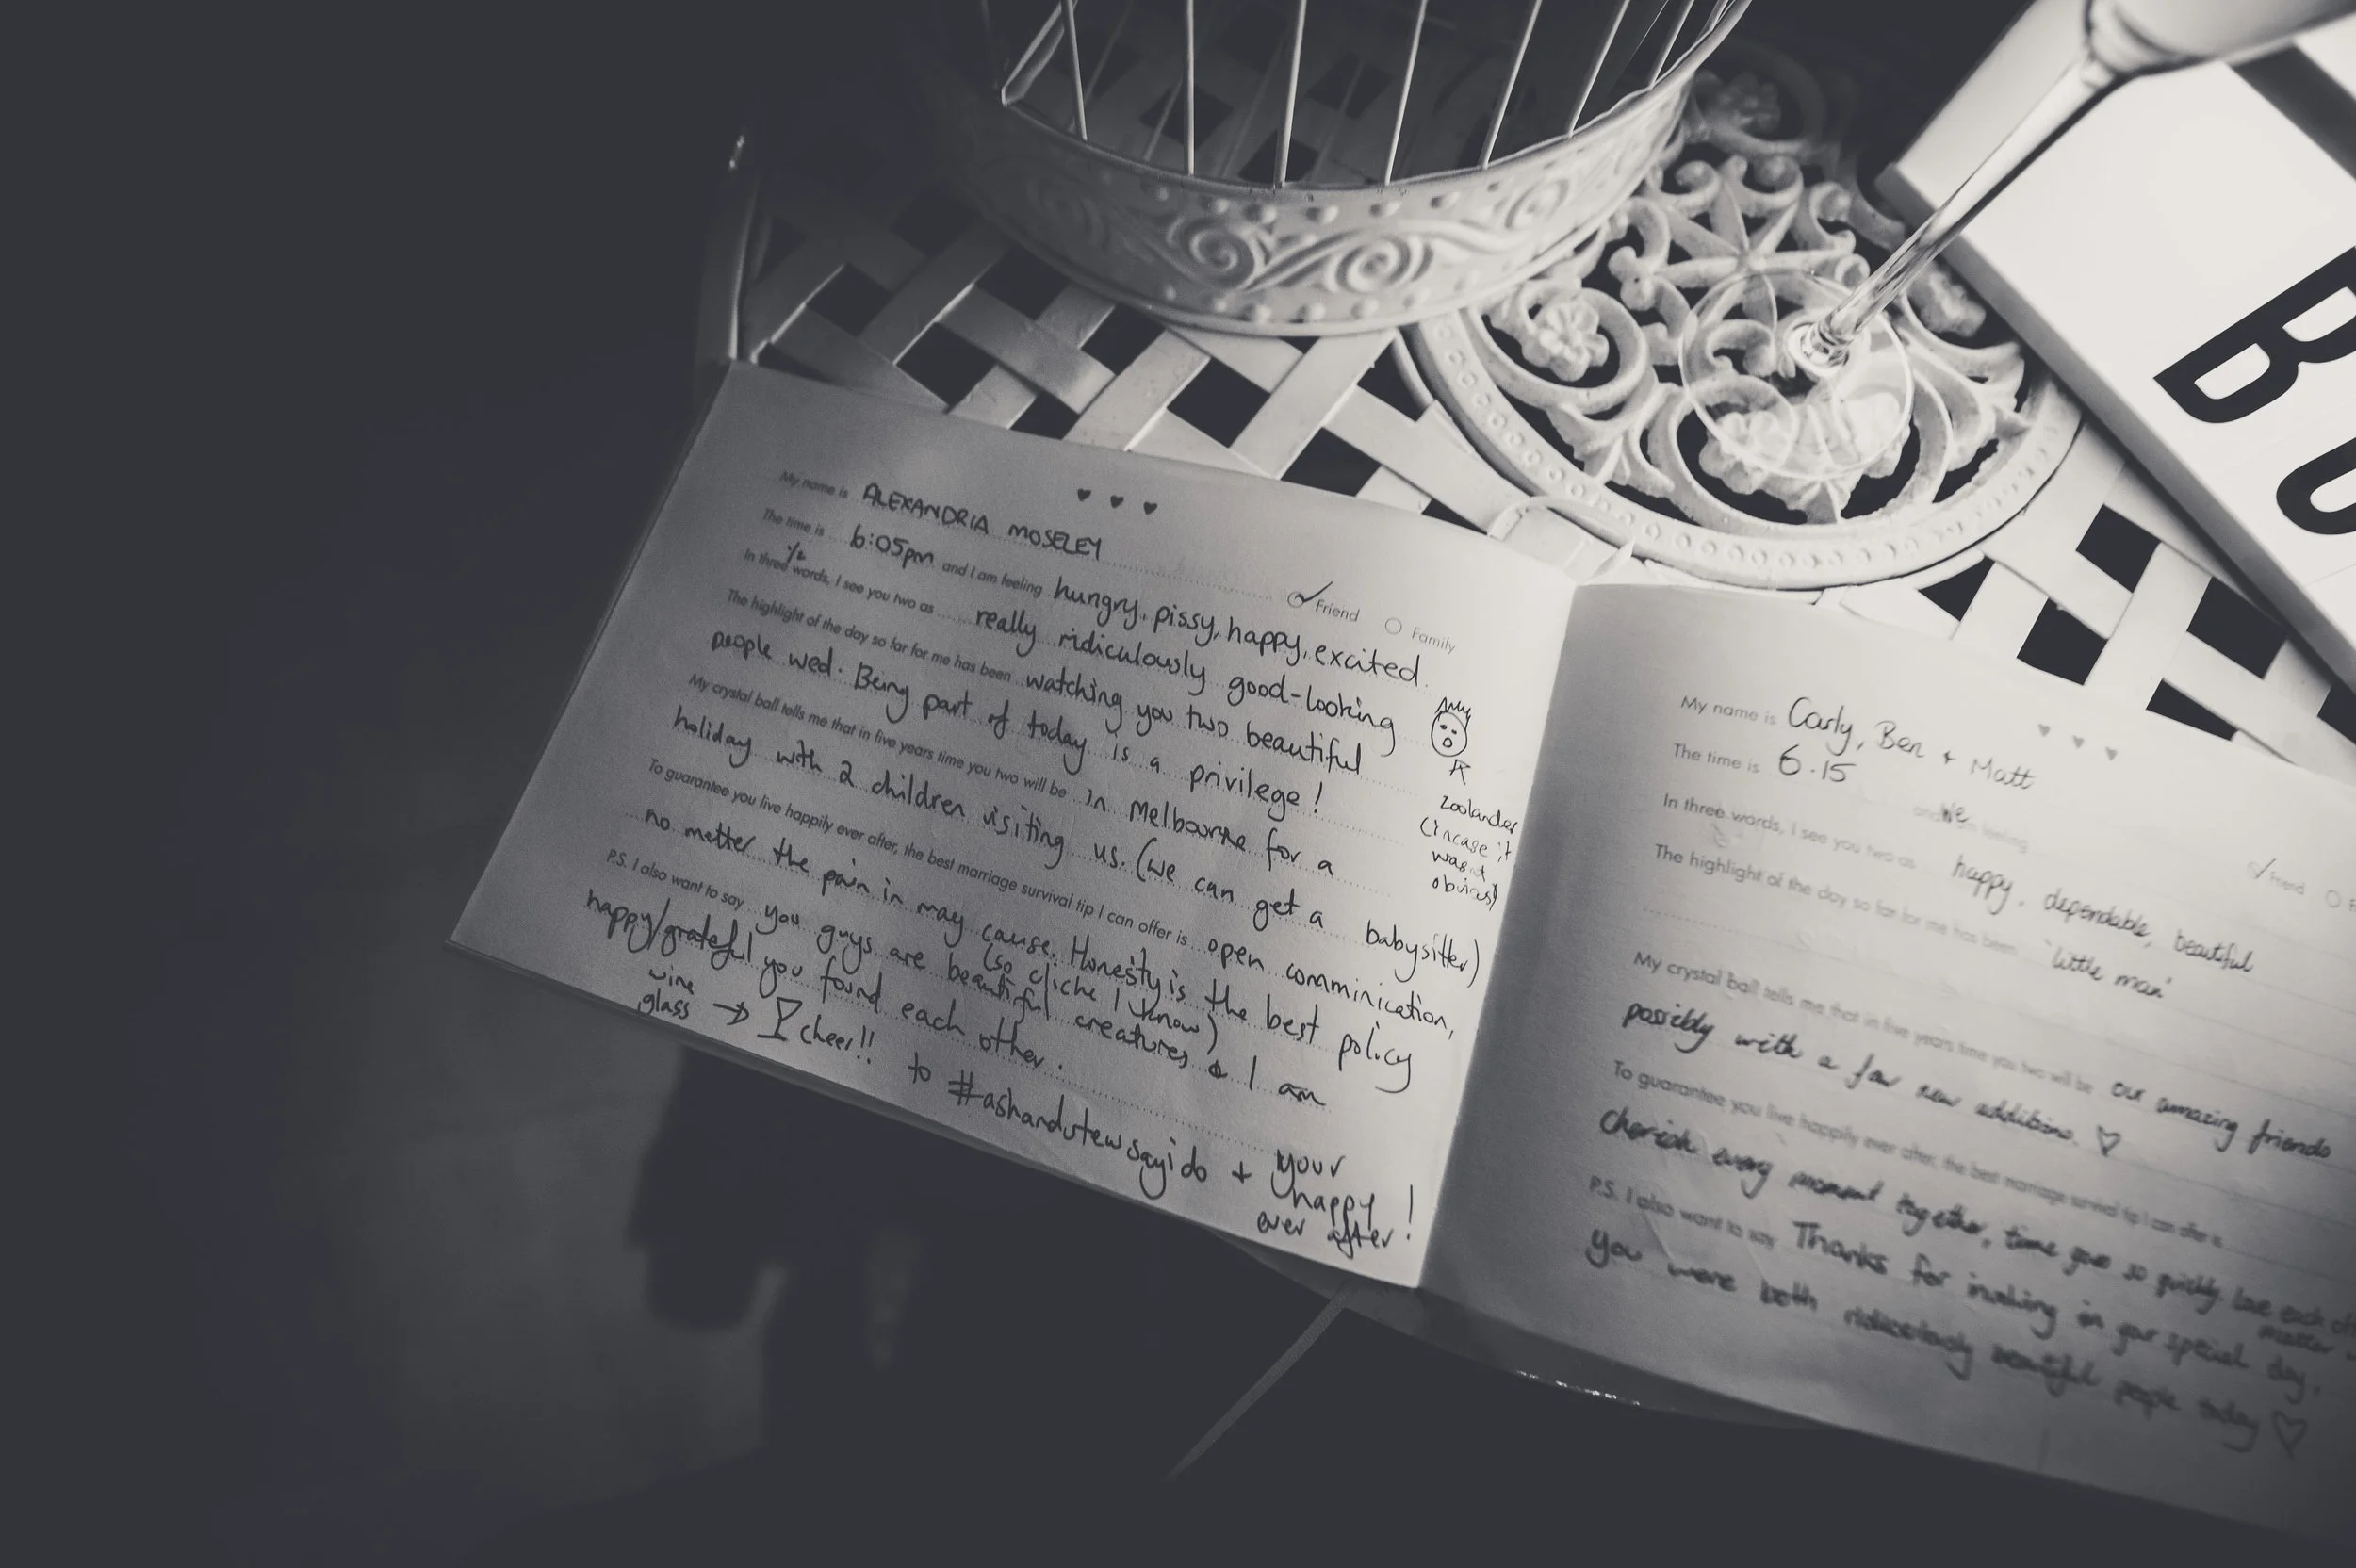 My name is ALEXANDRIA MOSELEY
Friend Family
The time is 6:05pm and I am feeling hungry, pissy, happy, excited.
In three 1/2 words, I see you two as really ridiculously good-looking
The highlight of the day so far for me has been watching you two beautiful
people wed. Being part of today is a privilege!
My crystal ball tells me that in five years time you two will be in Melbourne for a
holiday with 2 children visiting us. (we can get a babysitter)
To guarantee you live happily ever after, the best marriage survival tip I can offer is open comminication,
no matter the pain in may cause. Honesty is the best policy
(so cliche I know)
P.S. I also want to say you guys are beautiful creatures & I am
happy/grateful you found each other.
wine
glass
cheer!! to #ashandstewsayido + your
happy
ever after!
zoolander
(incase it
wasn't
obvious)
My name is Carly, Ben + Matt
The time is 6.15 and we feeling
Friend
In three words, I see you two as happy, dependable, beautiful
The highlight of the day so far for me has been 'little man'
My crystal ball tells me that in five years time you two will be our amazing friends
possibly with a few new additions.
To guarantee you live happily ever after, the best marriage survival tip I can offer is
cherish every moment together, time goes so quickly love each
matter
P.S. I also want to say Thanks for inviting in your special day,
you were both ridiculously beautiful people today